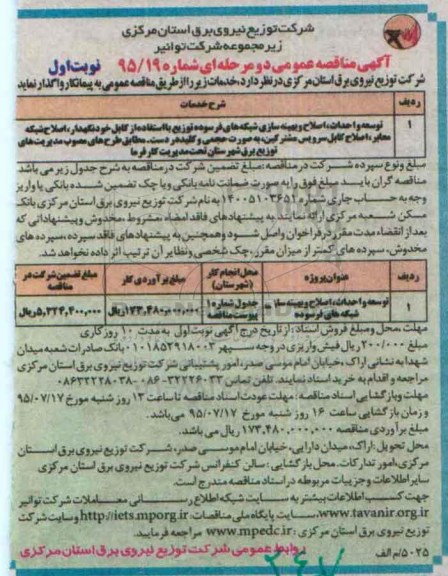 شرکت توزیع نیروی برق استان مرکزی
زیر مجموعه شرکت توانیر
آگهی مناقصه عمومی دو مرحله ای شماره ۹۵/۱۹ نوبت اول
شرکت توزیع نیروی برق استان مرکزی در نظر دارد، خدمات زیر را از طریق مناقصه عمومی به پیمانکار واگذار نماید
ردیف شرح خدمات
۱ توسعه و احداث، اصلاح و بهینه سازی شبکه های فرسوده توزیع با استفاده از کابل خودنگهدار، اصلاح شبکه
معابر، اصلاح کابل سرویس مشترکین، به صورت حجمی و کلید در دست، مطابق طرح های مصوب مدیریت های
توزیع برق شهرستان تحت مدیریت کارفرما
مبلغ و نوع سپرده شرکت در مناقصه: مبلغ تضمین شرکت در مناقصه به شرح جدول زیر می باشد
مناقصه گران بایـد مبلغ فوق را به صورت ضمانت نامه بانکی و یا چک تضمین شده بانکی یا واریز
وجه به حساب جاری شماره ۱۴۰۰۵۱۰۳۶۵۱ به نام شرکت توزیع نیروی برق استان مرکزی بانک
مسکن شعبه مرکزی ارائه نمایند. به پیشنهادهای فاقد امضاء، مشروط، مخدوش و پیشنهاداتی که
بعد از انقضاء مدت مقرر در فراخوان واصل شود و همچنین به پیشنهادهای فاقد سپرده، سپرده های
مخدوش، سپرده های کمتر از میزان مقرر، چک شخصی و نظایر آن ترتیب اثر داده نخواهد شد.
ردیف عنوان پروژه محل انجام کار (شهرستان) مبلغ برآوردی کار مبلغ تضمین شرکت در مناقصه
۱ توسعه و احداث، اصلاح و بهینه سازی شبکه های فرسوده جدول شماره ۱ پیوست مناقصه ۱۷۳,۴۸۰,۰۰۰,۰۰۰ ریال ۵,۳۲۴,۴۰۰,۰۰۰ ریال
مهلت، محل و مبلغ فروش اسناد: از تاریخ درج آگهی نوبت اول به مدت ۱۰ روز کاری
مبلغ ۲۰۰/۰۰۰ ریال فیش واریزی در وجه سپهر ۰۱۰۱۸۵۲۹۱۸۰۰۲ بانک صادرات شعبه میدان
شهدا به نشانی اراک، خیابان امام موسی صدر، امور پشتیبانی شرکت توزیع نیروی برق استان مرکزی
مراجعه و اقدام به خرید اسناد نمایند. تلفن تماس ۳۲۲۲۶۰۳۳-۰۸۶ ۰۸۶۳۲۲۲۸۰۳۸
مهلت و بازگشایی اسناد مناقصه: مهلت عودت اسناد مناقصه تا ساعت ۱۳ روز شنبه مورخ ۹۵/۰۷/۱۷
و زمان بازگشایی ساعت ۱۶ روز شنبه مورخ ۹۵/۰۷/۱۷ می باشد.
مبلغ برآوردی مناقصه ۱۷۳,۴۸۰,۰۰۰,۰۰۰ ریال می باشد.
محل تحویل: اراک، میدان دارایی، خیابان امام موسی صدر، شرکت توزیع نیروی برق استان
مرکزی، امور تدارکات. محل بازگشایی: سالن کنفرانس شرکت توزیع نیروی برق استان مرکزی
سایر اطلاعات و جزییات مربوطه در اسناد مناقصه مندرج است.
جهت کسب اطلاعات بیشتر به سایت شبکه اطلاع رسانی معاملات شرکت توانیر
www.tavanir.org.ir، سایت پایگاه ملی مناقصات: http://iets.mporg.ir و سایت شرکت
توزیع نیروی برق استان مرکزی: www.mpedc.ir مراجعه فرمایید.
۵۰۲۵/م الف روابط عمومی شرکت توزیع نیروی برق استان مرکزی
۲۴۷